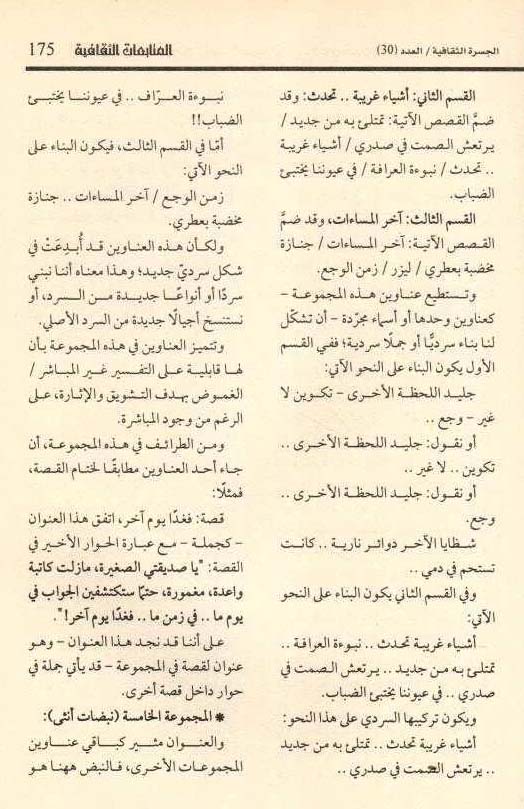 الجسرة الثقافية / العدد (30)
المتابعات الثقافية 175
القسم الثاني: أشياء غريبة .. تحدث: وقد
ضمَّ القصص الآتية: تمتلئ به من جديد /
يرتعش الصمت في صدري / أشياء غريبة
.. تحدث / نبوءة العرافة / في عيوننا يختبئ
الضباب.
القسم الثالث: آخر المساءات، وقد ضمَّ
القصص الآتية: آخر المساءات / جنازة
مخضبة بعطري / ليزر / زمن الوجع.
وتستطيع عناوين هذه المجموعة –
كعناوين وحدها أو أسماء مجرّدة – أن تشكّل
لنا بناء سرديًّا أو جملًا سردية؛ ففي القسم
الأول يكون البناء على النحو الآتي:
جليد اللحظة الأخرى – تكوين لا
غير – وجع ..
أو نقول: جليد اللحظة الأخرى ..
تكوين .. لا غير ..
أو نقول: جليد اللحظة الأخرى ..
وجع.
شظايا الآخر دوائر نارية .. كانت
تستحم في دمي ..
وفي القسم الثاني يكون البناء على النحو
الآتي:
أشياء غريبة تحدث .. نبوءة العرافة ..
تمتلئ به من جديد .. يرتعش الصمت في
صدري .. في عيوننا يختبئ الضباب.
ويكون تركيبها السردي على هذا النحو:
أشياء غريبة تحدث .. تمتلئ به من جديد
.. يرتعش الصمت في صدري ..
نبوءة العرّاف .. في عيوننا يختبئ
الضباب!!
أمّا في القسم الثالث، فيكون البناء على
النحو الآتي:
زمن الوجع / آخر المساءات .. جنازة
مخضبة بعطري.
ولكأن هذه العناوين قد أُبدِعَتْ في
شكل سرديّ جديد؛ وهذا معناه أننا نبني
سردًا أو أنواعًا جديدة من السرد، أو
نستنسخ أجيالًا جديدة من السرد الأصلي.
وتتميز العناوين في هذه المجموعة بأن
لها قابلية على التفسير غير المباشر /
الغموض بهدف التشويق والإثارة، على
الرغم من وجود المباشرة.
ومن الطرائف في هذه المجموعة، أن
جاء أحد العناوين مطابقًا لختام القصة،
فمثلًا:
قصة: فغدًا يوم آخر، اتفق هذا العنوان
– كجملة – مع عبارة الحوار الأخير في
القصة: "يا صديقتي الصغيرة، مازلت كاتبة
واعدة، مغمورة، حتمًا ستكتشفين الجواب في
يوم ما .. في زمن ما .. فغدًا يوم آخر!".
على أننا قد نجد هذا العنوان – وهو
عنوان لقصة في المجموعة – قد يأتي جملة في
حوار داخل قصة أخرى.
* المجموعة الخامسة (نبضات أنثى):
والعنوان مثير كباقي عناوين
المجموعات الأخرى، فالنبض ههنا هو